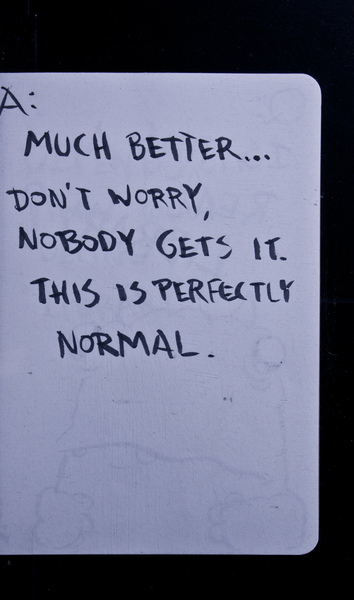 A:
MUCH BETTER...
DON'T WORRY,
NOBODY GETS IT.
THIS IS PERFECTLY
NORMAL.